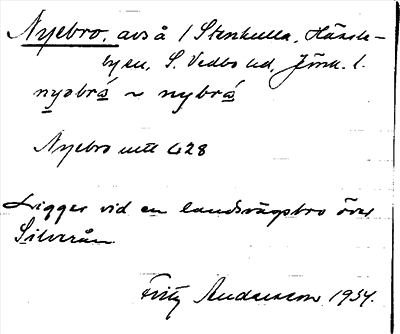 Nyebro, avs å 1 Stenkulla, Hässle-
bysn, S. Vedbo hd, Jönk. l.
nyəbrá ~ nybrá
Nyebro mtt 628
Ligger vid en landsvägsbro över
Silverån
Fritz Andersson 1934.